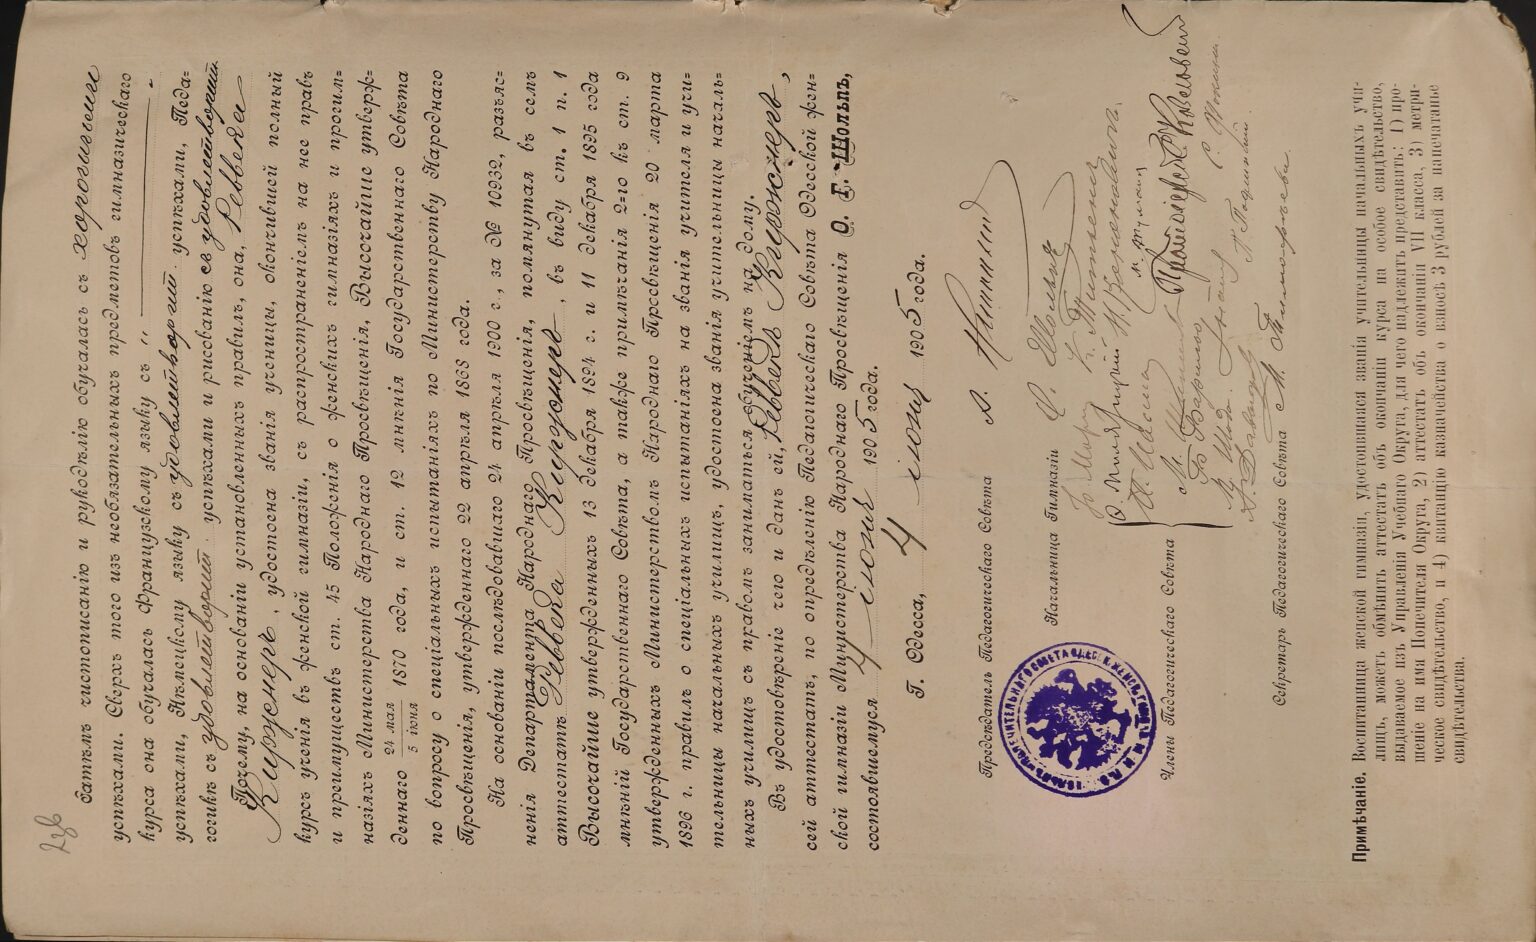 Затѣмъ чистописанію и рукодѣлію обучалась съ хорошими
успѣхами. Сверхъ того изъ необязательныхъ предметовъ гимназическаго
курса она обучалась французскому языку съ „ ——— „
успѣхами, Нѣмецкому языку съ удовлетворит. успѣхами, Педа=
гогикѣ съ удовлетворит. успѣхами и рисованію съ удовлетворит.
Почему, на основаніи установленныхъ правилъ, она, Реввека
Киржнеръ, удостоена званія ученицы, окончившей полный
курсъ ученія въ женской гимназіи, съ распространеніемъ на нее правъ
и преимуществъ ст. 45 Положенія о женскихъ гимназіяхъ и прогим=
назіяхъ Министерства Народнаго Просвѣщенія, Высочайше утверж=
деннаго 24 мая / 5 іюня 1870 года, и ст. 12 мнѣнія Государственнаго Совѣта
по вопросу о спеціальныхъ испытаніяхъ по Министерству Народнаго
Просвѣщенія, утвержденнаго 22 апрѣля 1868 года.
На основаніи послѣдовавшаго 24 апрѣля 1900 г., за № 10932, разъяс=
ненія Департамента Народнаго Просвѣщенія, помянутая въ семъ
аттестатѣ Реввека Киржнеръ, въ виду ст. 1 п. 1
Высочайше утвержденныхъ 13 декабря 1894 г. и 11 декабря 1895 года
мнѣній Государственнаго Совѣта, а также примѣчанія 2=го къ ст. 9
утвержденныхъ Министерствомъ Народнаго Просвѣщенія 20 марта
1896 г. правилъ о спеціальныхъ испытаніяхъ на званія учителя и учи=
тельницы начальныхъ училищъ, удостоена званія учительницы началь=
ныхъ училищъ съ правомъ заниматься обученіемъ на дому.
Въ удостовѣреніе чего и данъ ей, Реввекѣ Киржнеръ,
сей аттестатъ, по опредѣленію Педагогическаго Совѣта Одесской жен=
ской гимназіи Министерства Народнаго Просвѣщенія О. Г. Шольпъ,
состоявшемуся 4 іюня 1905 года.
Г. Одесса, 4 іюня 1905 года.
Предсѣдатель Педагогическаго Совѣта
Начальница Гимназіи О. Шольпъ
Члены Педагогическаго Совѣта
Секретарь Педагогическаго Совѣта
Примѣчаніе. Воспитанница женской гимназіи, удостоившаяся званія учительницы начальныхъ учи-
лищъ, можетъ обмѣнить аттестатъ объ окончаніи курса на особое свидѣтельство,
выдаваемое изъ Управленія Учебнаго Округа, для чего надлежитъ представить: 1) про-
шеніе на имя Попечителя Округа, 2) аттестатъ объ окончаніи VII класса, 3) метри-
ческое свидѣтельство, и 4) квитанцію казначейства о взносѣ 3 рублей за напечатанье
свидѣтельства.